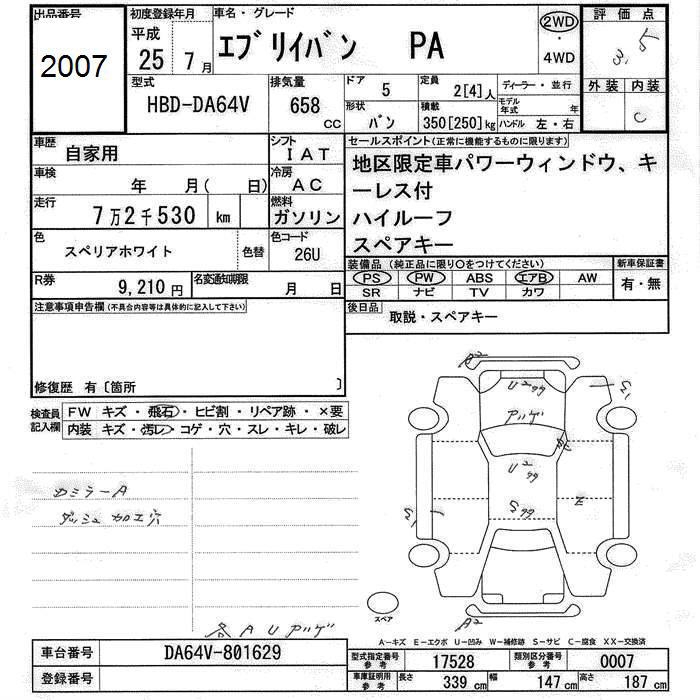 出品番号
2007
初度登録年月
平成
25年7月
車名・グレード
エブリイバン PA
2WD
・
4WD
評価点
3.5
型式
HBD-DA64V
排気量
658
cc
ドア
5
定員
2[4]人
ディーラー・並行
形状
バン
積載
350[250]kg
モデル年式 年
ハンドル 左・右
外装 内装
C
車歴
自家用
シフト
IAT
車検
年 月( 日)
冷房
AC
走行
7万2千530 km
燃料
ガソリン
色
スペリアホワイト
色替
色コード
26U
R券
9,210円
名変通知期限
月 日
セールスポイント(正常に機能するものに限ります)
地区限定車パワーウィンドウ、キ
ーレス付
ハイルーフ
スペアキー
装備品(純正品に限り○をつけてください)
PS PW ABS エアB AW
SR ナビ TV カワ
新車保証書
有・無
後日品
取説・スペアキー
注意事項申告欄(不具合内容等は具体的に記入して下さい)
修復歴 有〔箇所 〕
検査員
記入欄
FW キズ・飛石・ヒビ割・リペア跡・×要
内装 キズ・汚レ・コゲ・穴・スレ・キレ・破レ
カミラーA
ダッシュ加工穴
各AUアリゲ
A2
U2
S1
U2
E
S1
A2
スペア
A－キズ E－エクボ U－凹み W－補修跡 S－サビ C－腐食 XX－交換済
車台番号
DA64V-801629
登録番号
型式指定番号
参考
17528
類別区分番号
参考
0007
車庫証明用
参考
長さ
339cm
幅
147cm
高さ
187cm